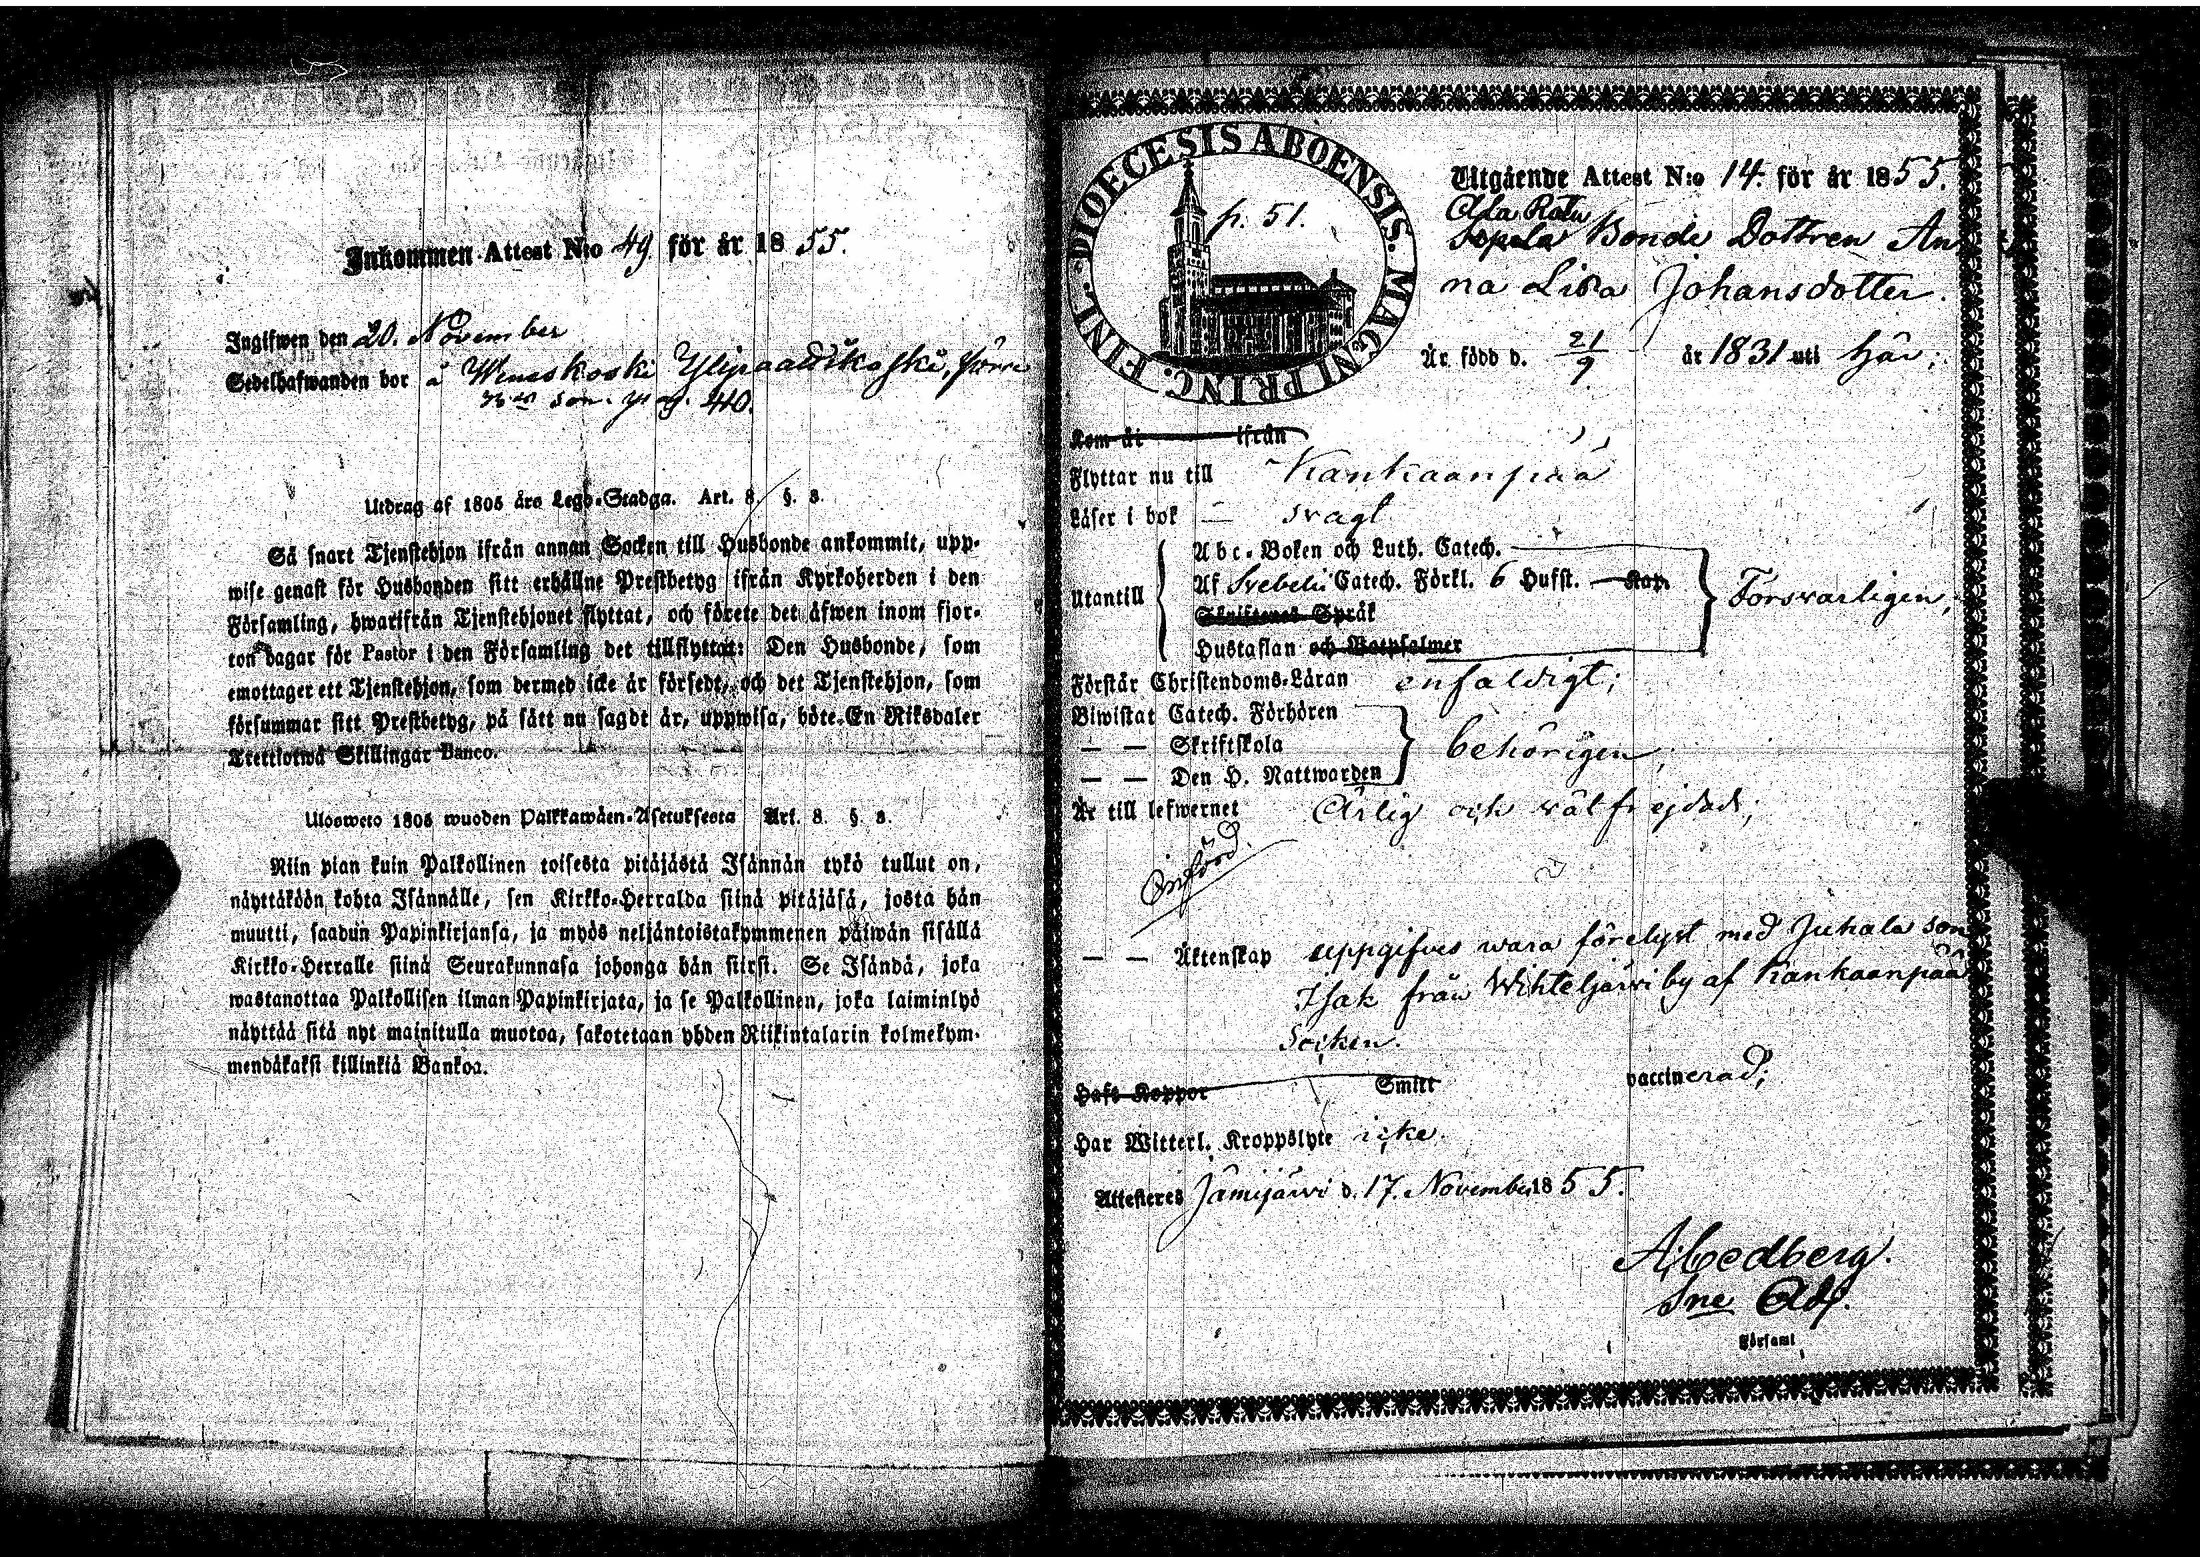 Inkommen Attest N:o 49 för år 1855.
Ingifwen den 20. November
Sedelhafwanden bor å
pag. 40.
Utdrag af 1805 års Lego-Stadga. Art. 8. §. 8.
Så snart Tjenstehjon ifrån annan Socken till Husbonde ankommit, upp-
wise genast för Husbonden sitt erhållne Prestbetyg ifrån Kyrkoherden i den
Församling, hwarifrån Tjenstehjonet flyttat, och förete det äfwen inom fjor-
ton dagar för Pastor i den Församling det tillflyttat: Den Husbonde, som
emottager ett Tjenstehjon, som dermed icke är försedt, och det Tjenstehjon, som
försummar sitt Prestbetyg, på sätt nu sagdt är, uppwisa, böte En Riksdaler
Trettiotwå Skillingar Banco.
Ulosweto 1805 wuoden Palkkawäen-Asetuksesta Art. 8. §. 8.
Niin pian kuin Palkollinen toisesta pitäjästä Isännän tykö tullut on,
näyttäköön kohta Isännälle, sen Kirkko-Herralda siinä pitäjäsä, josta hän
muutti, saadun Papinkirjansa, ja myös neljäntoistakymmenen päiwän sisällä
Kirkko-Herralle siinä Seurakunnasa johonga hän siirsi. Se Isändä, joka
wastanottaa Palkollisen ilman Papinkirjata, ja se Palkollinen, joka laiminlyö
näyttää sitä nyt mainitulla muotoa, sakotetaan yhden Riikintalarin kolmekym-
mendäkaksi killinkiä Bankoa.
DIOECESIS ABOENSIS. MAGNI PRINC. FINL.
p. 51.
Utgående Attest N:o 14. för år 1855.
Bonde Dottren An
na Lisa Johansdotter.
Är född d. 21/9 år 1831 uti här;
Kom år ifrån
Flyttar nu till Kankaanpää
Läser i bok — svagt
Utantill
Abc-Boken och Luth. Catech.
Af Svebelii Catech. Förkl. 6 Hufst. Kap.
Skriftenes Språk
Hustaflan och Botpsalmer
Försvarligen,
Förstår Christendoms-Läran enfaldigt;
Biwistat Catech. Förhören
— — Skriftskola
— — Den H. Nattwarden
behörigen,
Är till lefwernet Ärlig och välfrejdad;
Införd.
— — Äktenskap uppgifves wara förelyst med Juhala son
Isak från Wihteljärwi by af Kankaanpää
Socken.
Haft Koppor Smitt vaccinerad;
Har Witterl. Kroppslyte icke.
Attesteres Jämijärwi d. 17. November 1855.
A. Cedberg.
Sne Adj.
Församl